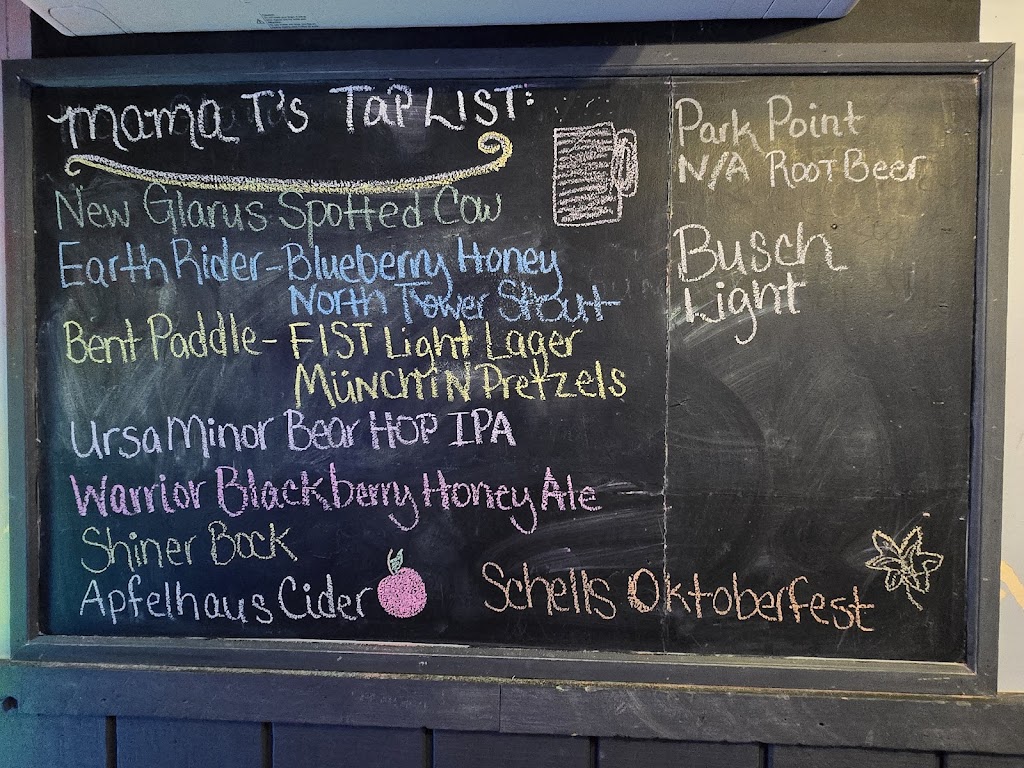 mama T's TaP LIST:
New Glarus Spotted Cow
Earth Rider - Blueberry Honey
North Tower Stout
Bent Paddle - FIST Light Lager
MÜNCHIN Pretzels
Ursa Minor Bear HOP IPA
Warrior Blackberry Honey Ale
Shiner Bock
Apfelhaus Cider
Park Point
N/A ROOT Beer
Busch
Light
Schells Oktoberfest